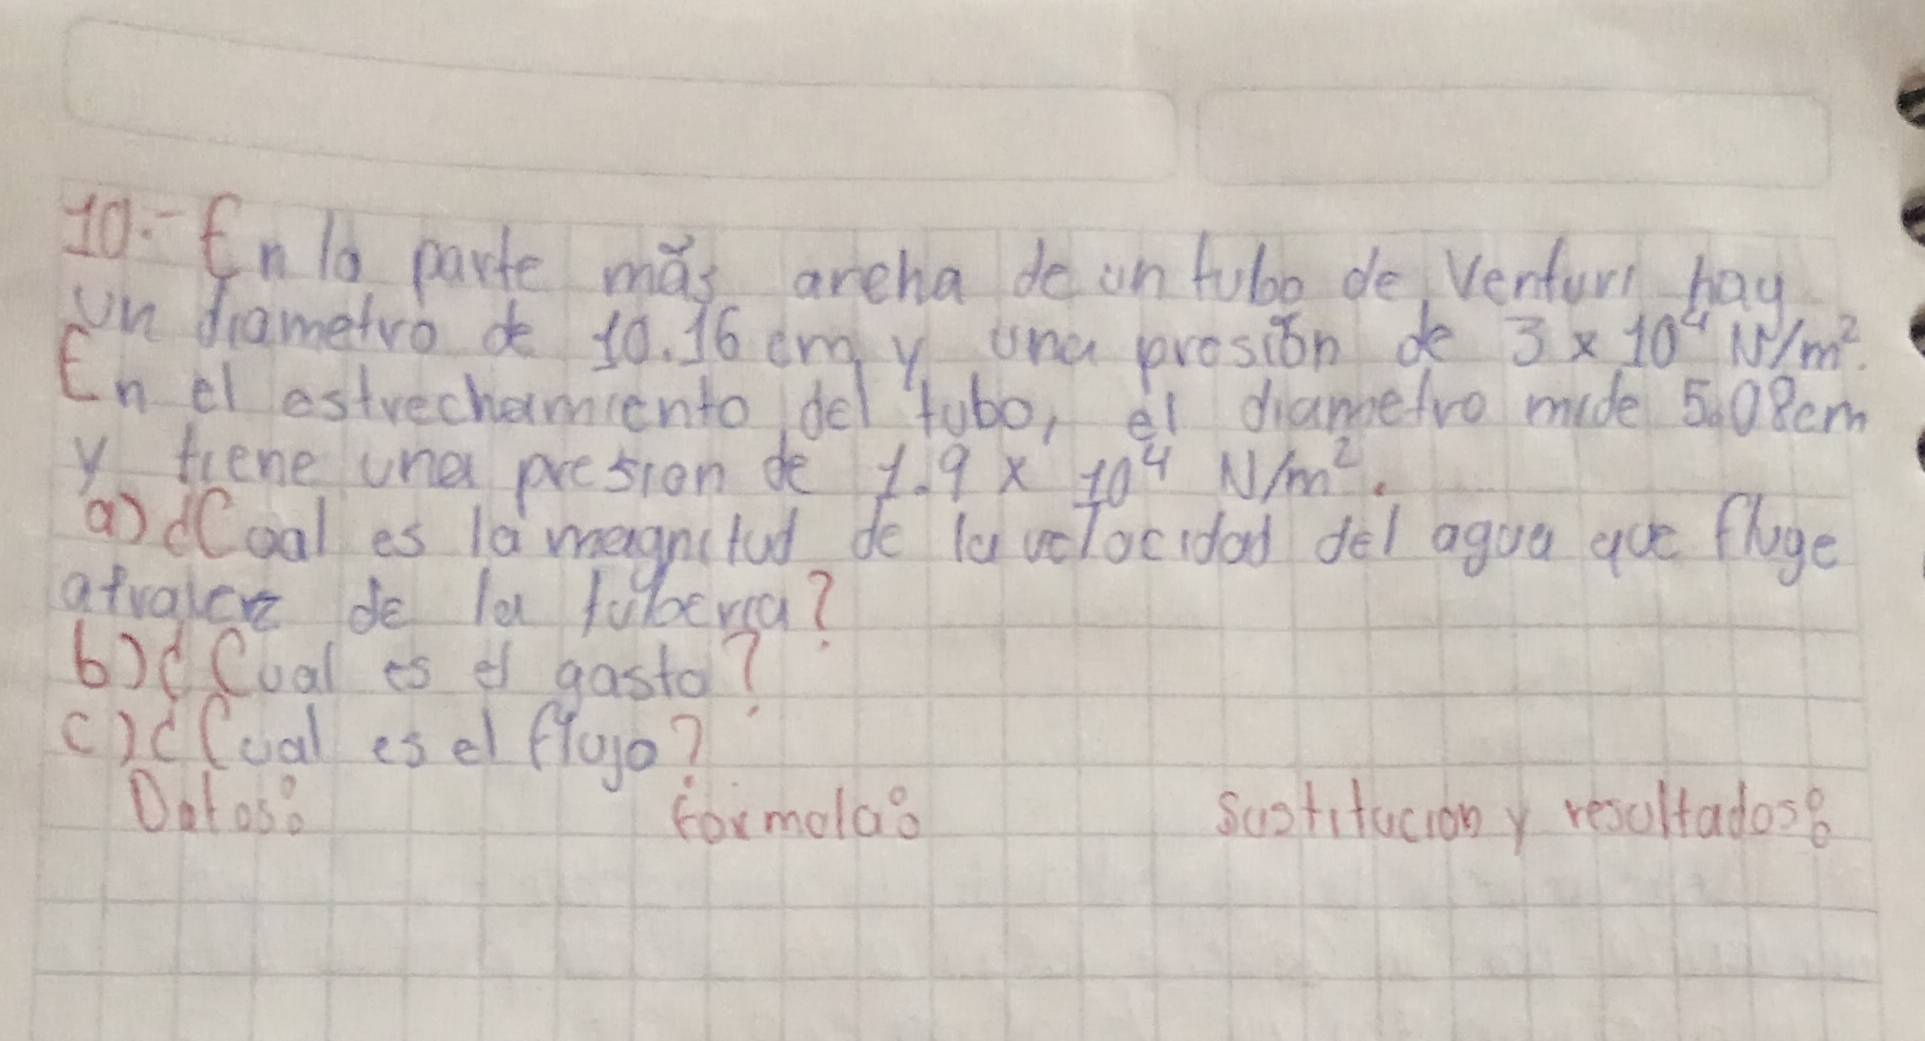 10.- En la parte más ancha de un tubo de Venturi hay
un diametro de 10.16 cm y una presión de 3 x 10⁴ N/m².
En el estrechamiento del tubo, el diametro mide 5.08cm
y tiene una presion de 1.9 x 10⁴ N/m².
a) ¿Cual es la magnitud de la velocidad del agua que fluge
atravez de la tuberia?
b) ¿Cual es el gasto?
c) ¿Cual es el flujo?
Datos: formula: Sustitucion y resultados: